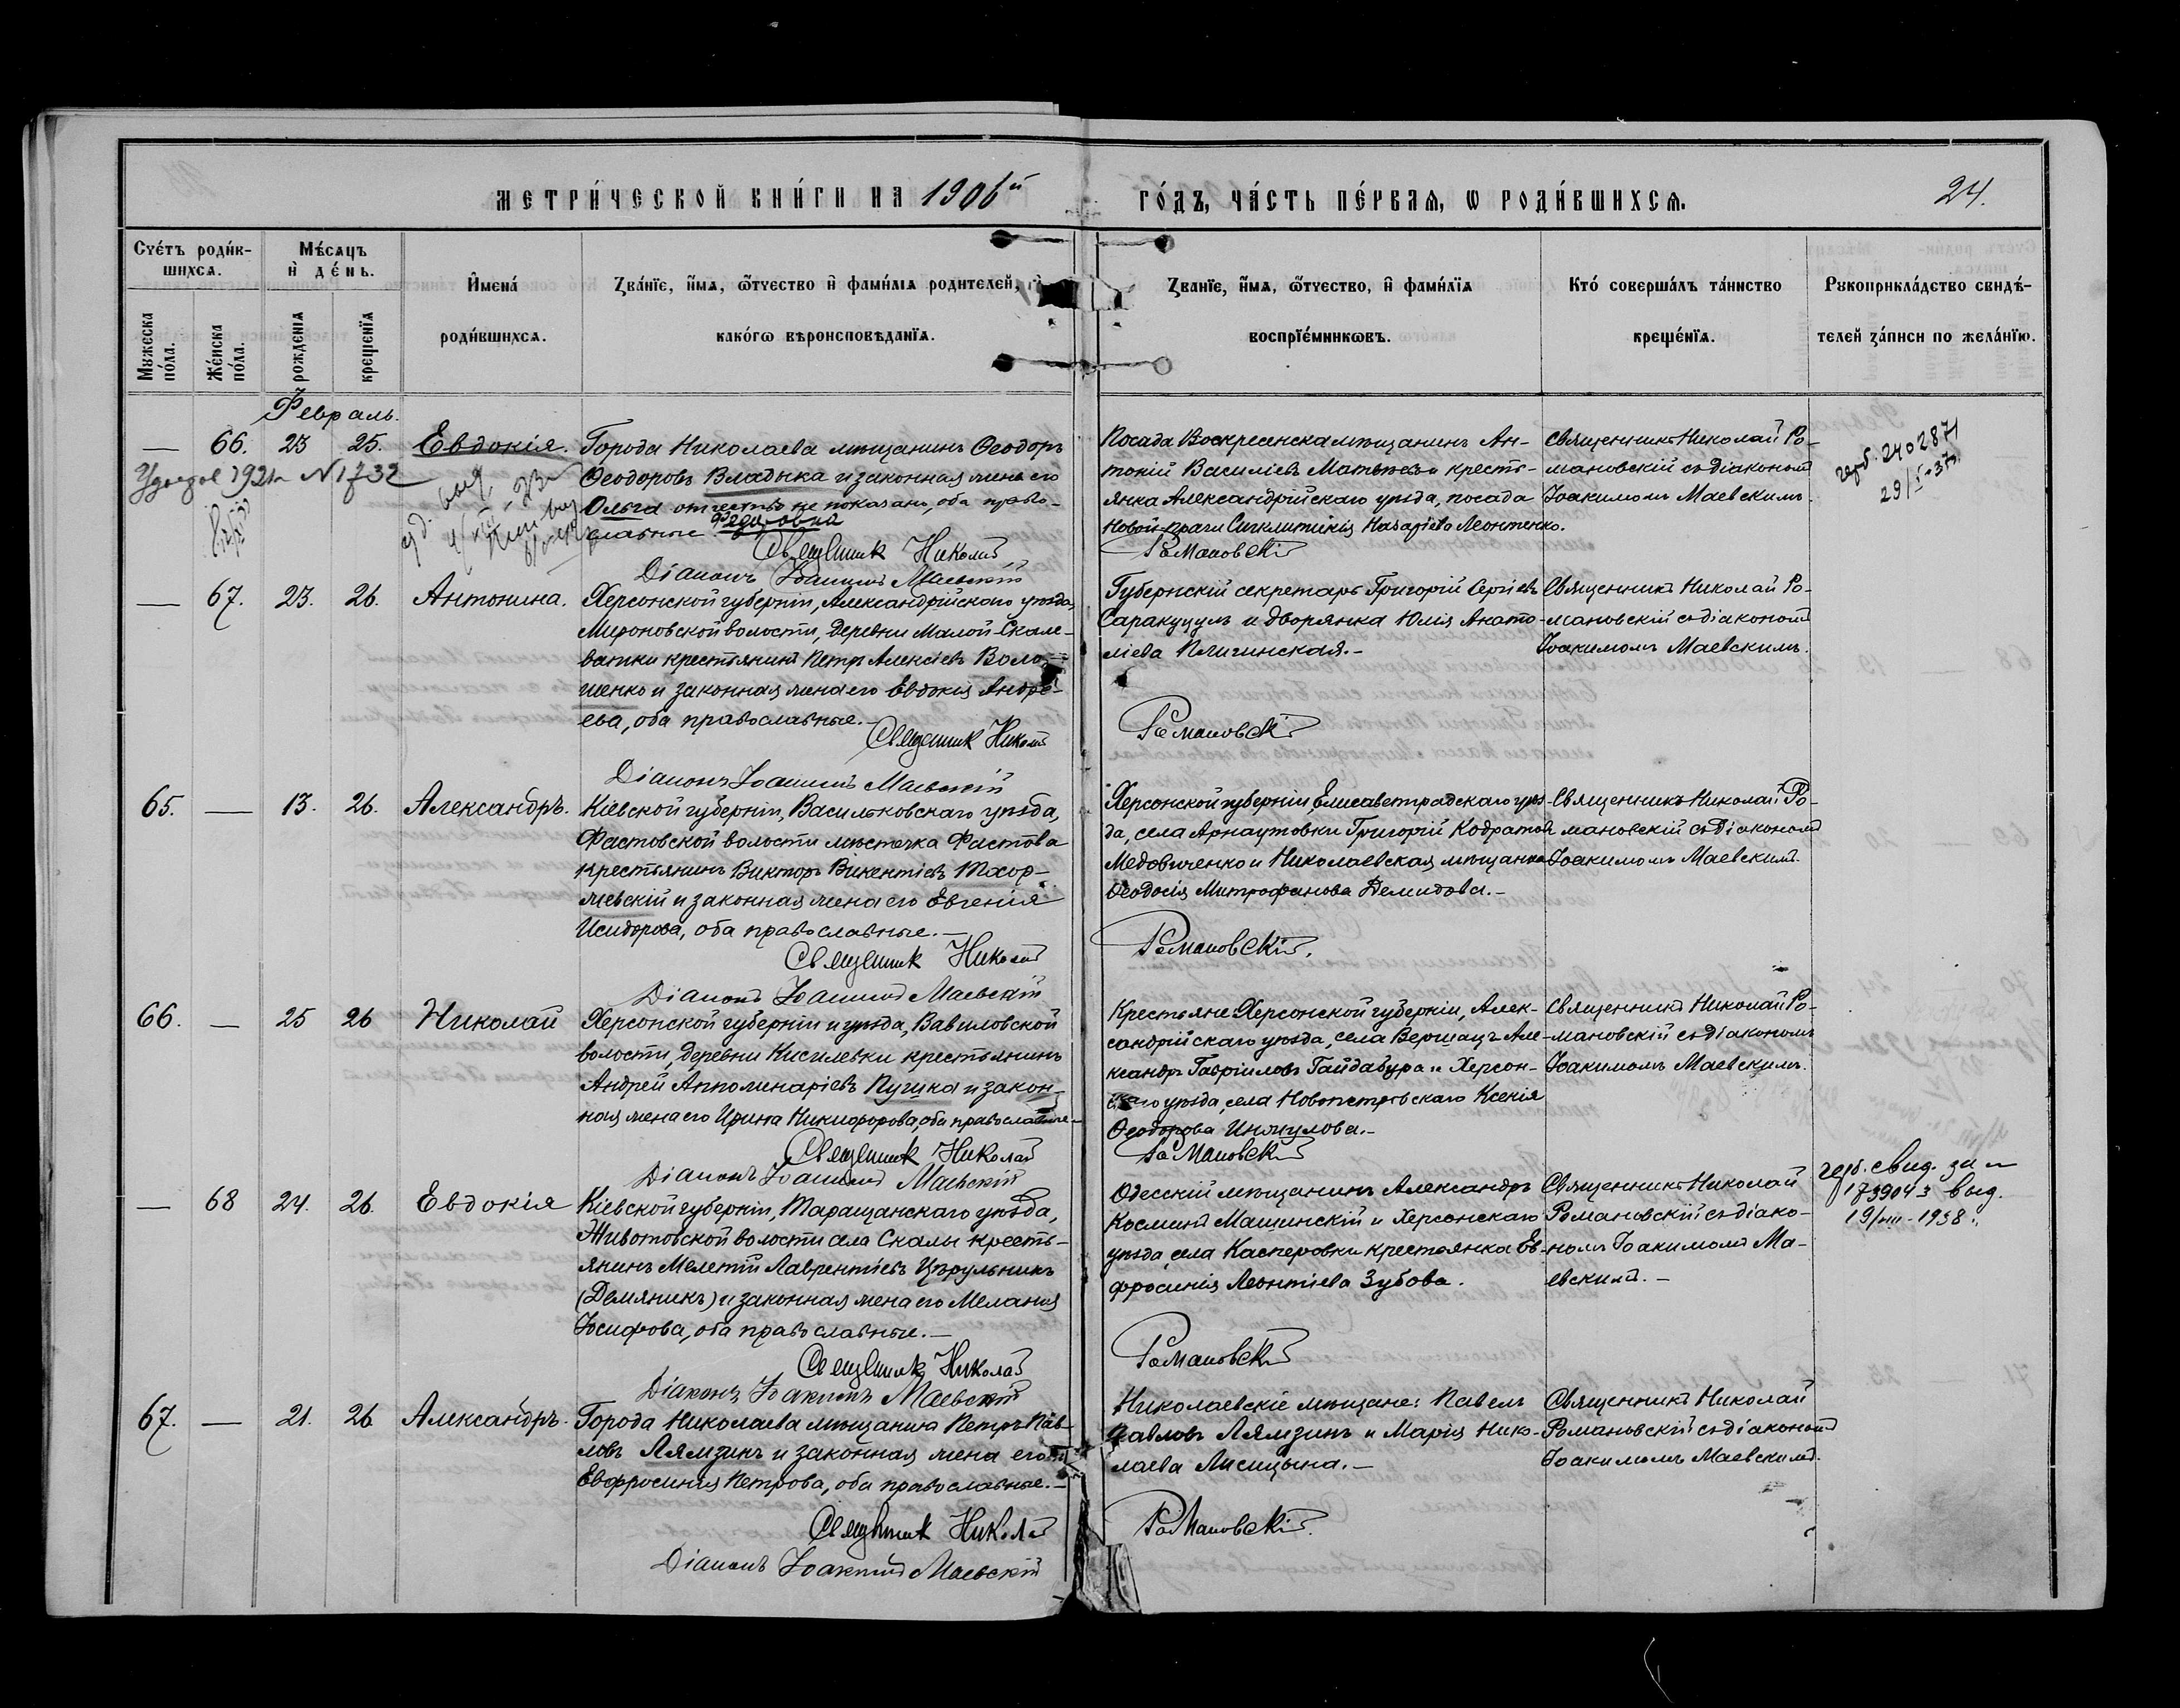 МЕТРИ́ЧЕСКОЙ КНИ́ГИ НА 1906й ГО́ДЪ, ЧА́СТЬ ПЕ́РВАѦ, Ѡ РОДИ́ВШИХСѦ.
24.
Сче́тъ роди́в-
шихсѧ.
Мꙋжеска по́ла.
Же́нска по́ла.
Мѣ́сѧцъ
и҆ де́нь.
рожденїѧ
крещенїѧ
И҆мена́
роди́вшихсѧ.
Зва́нїе, и҆́мѧ, ѻ҆́тчество и҆ фами́лїѧ родителей, и҆
како́гѡ вѣроисповѣданїѧ.
Званїе, и҆́мѧ, ѻ҆́тчество, и҆ фами́лїѧ
воспрїе́мникѡвъ.
Кто́ соверша́лъ та́инство
креще́нїѧ.
Рꙋкоприкла́дство свидѣ́-
телей за́писи по жела́нїю.
Февраль.
— 66. 23 25. Евдокія.
Города Николаева мѣщанинъ Ѳеодоръ
Ѳеодоровъ Владыка и законная жена его
Ольга отчество не показано, оба право-
славные Федоровна
Священник Николай
Романовскій
Діаконъ Іоакимъ Маевскій
Посада Воскресенска мѣщанинъ Ан-
тоній Василіевъ Матвѣевъ и кресть-
янка Александрійскаго уѣзда, посада
Новой-Праги Синклитикія Назаріева Леонтенко.
Священникъ Николай Ро-
мановскій съ діакономъ
Іоакимомъ Маевскимъ.
240287
29/I-37
1921 N 1732
— 67. 23. 26. Антонина.
Херсонской губерніи, Александрійскаго уѣзда,
Мироновской волости, деревни Малой-Скале-
ватки крестьянинъ Петръ Алексіевъ Воло-
шенко и законная жена его Евдокія Андре-
ева, оба православные.—
Священник Николай
Романовскій
Діаконъ Іоакимъ Маевскій
Губернскій секретарь Григорій Сергіевъ
Саракуцулъ и дворянка Юлія Анато-
ліева Пличинская.—
Священникъ Николай Ро-
мановскій съ діакономъ
Іоакимомъ Маевскимъ.
65. — 13. 26. Александръ.
Кіевской губерніи, Васильковскаго уѣзда,
Фастовской волости мѣстечка Фастова
крестьянинъ Викторъ Викентіевъ Тхор-
жевскій и законная жена его Евгенія
Исидорова, оба православные.—
Священник Николай
Романовскій.
Діаконъ Іоакимъ Маевскій
Херсонской губерніи, Елисаветградскаго уѣз-
да, села Арнаутовки Григорій Кодратовъ
Медовиченко и Николаевская мѣщанка
Ѳеодосія Митрофанова Демидова.—
Священникъ Николай Ро-
мановскій съ діакономъ
Іоакимомъ Маевскимъ.
66. — 25 26 Николай
Херсонской губерніи и уѣзда, Вавиловской
волости, деревни Киселевки крестьянинъ
Андрей Апполинаріевъ Пугика и закон-
ная жена его Ирина Никифорова, оба православные.—
Священник Николай
Романовскій
Діаконъ Іоакимъ Маевскій
Крестьяне: Херсонской губерніи, Алек-
сандрійскаго уѣзда, села Вершацъ Але-
ксандръ Гавріиловъ Гайдабура и Херсон-
скаго уѣзда, села Новопетровскаго Ксенія
Ѳеодорова Инжулова.—
Священникъ Николай Ро-
мановскій съ діакономъ
Іоакимомъ Маевскимъ.
— 68 24. 26. Евдокія
Кіевской губерніи, Таращанскаго уѣзда,
Животовской волости села Скалы кресть-
янинъ Мелетій Лаврентіевъ Цѣрульникъ
(Демяникъ) и законная жена его Меланія
Іосифова, оба православные.—
Священник Николай
Романовскій
Діаконъ Іоакимъ Маевскій
Одесскій мѣщанинъ Александръ
Косминъ Машинскій и Херсонскаго
уѣзда, села Касперовки крестьянка Ев-
фросинія Леонтіева Зубова.
Священникъ Николай
Романовскій съ діако-
номъ Іоакимомъ Ма-
евскимъ.—
герб. свид. за №
173904 выд.
19/VIII-1938.
67. — 21. 26 Александръ.
Города Николаева мѣщанина Петръ Пав-
ловъ Лямзинъ и законная жена его
Евфросинія Петрова, оба православные.—
Священник Николай
Романовскій.
Діаконъ Іоакимъ Маевскій
Николаевскіе мѣщане: Павелъ
Павловъ Лямзинъ и Марія Нико-
лаева Лисицына.—
Священникъ Николай
Романовскій съ діакономъ
Іоакимомъ Маевскимъ.